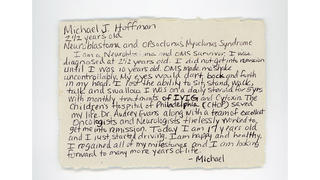 Michael J. Hoffman
2 1/2 years old
Neuroblastoma and Opsoclonus Myoclonus Syndrome
I am a Neuroblastoma and OMS survivor. I was
diagnosed at 2 1/2 years old. I did not get into remission
until I was 10 years old. OMS made me shake
uncontrollably. My eyes would dart back and forth
in my head. I lost the ability to sit, stand, walk,
talk and swallow. I was on a daily steroid for 5 yrs
with monthly treatments of IVIG and Cytoxin. The
Children's Hospital of Philadelphia (CHOP) saved
my life. Dr. Audrey Evans along with a team of excellent
Oncologists and Neurologists tirelessly worked to
get me into remission. Today I am 17 years old
and I just started driving. I am happy and healthy.
I regained all of my milestones and I am looking
forward to many more years of life.
- Michael